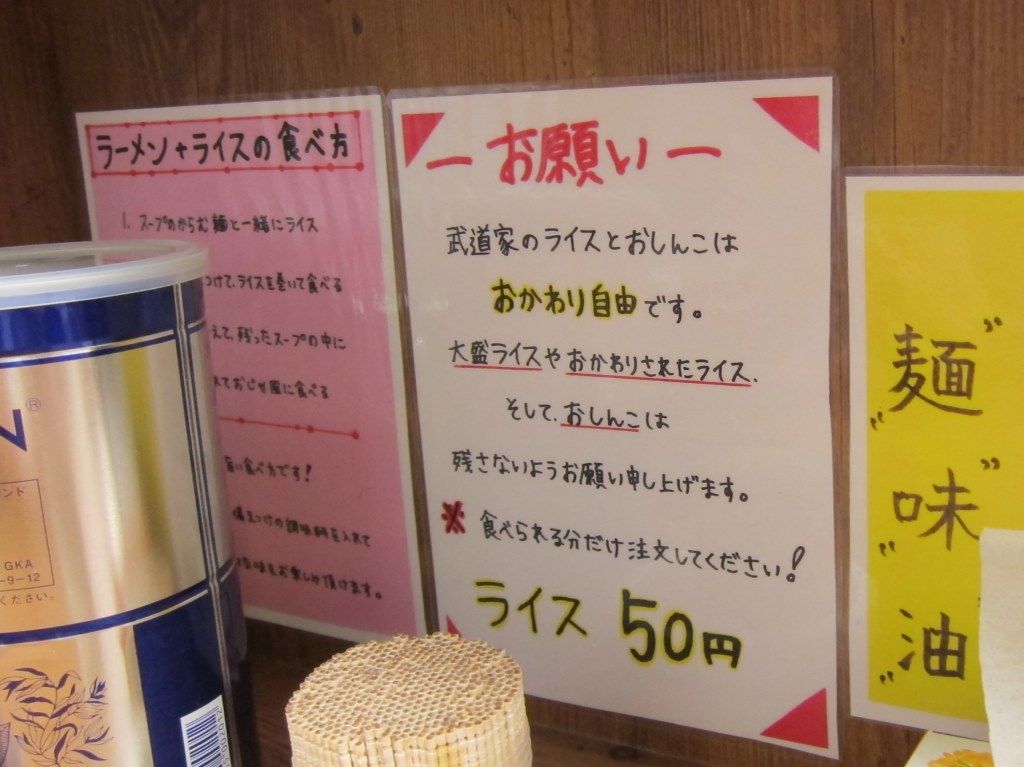 ラーメン+ライスの食べ方
1. スープのからむ麺と一緒にライス
つけて、ライスを巻いて食べる
えて、残ったスープの中に
ておじや風に食べる
食べ方です!
の調味料を入れて
味をお楽しみ頂けます。
ー お願い ー
武道家のライスとおしんこは
おかわり自由です。
大盛ライスやおかわりされたライス、
そして、おしんこは
残さないようお願い申し上げます。
※ 食べられる分だけ注文してください!
ライス 50円
"麺"
"味"
"油
N®
ンド
GKA
-9-12
ください。